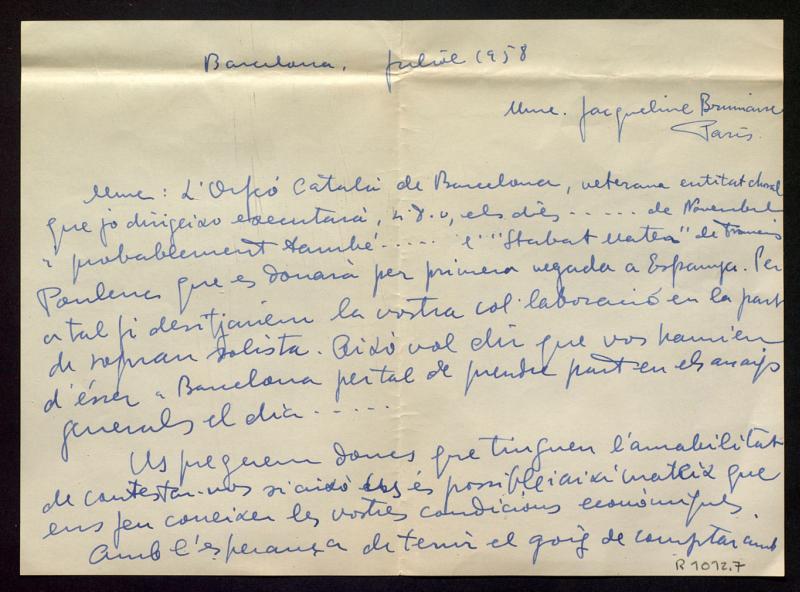 Barcelona, juliol 1958
Mme. Jacqueline Brumaire
Paris.
Mme: L'Orfeó Català de Barcelona, veterana entitat choral
que jo dirigeixo executarà, n. D. v, els dies ----- de Novembre
i probablement també ----- l' "Stabat Mater" de Francis
Poulenc que es donarà per primera vegada a Espanya. Per
a tal fi desitjariem la vostra col·laboració en la part
de sopran solista. Això vol dir que vos hauríeu
d'ésser a Barcelona per tal de prendre part en els assaigs
generals el dia -----
Us preguem doncs que tinguen l'amabilitat
de contestar-nos si això és possible i així mateix que
ens feu coneixer les vostres condicions econòmiques.
Amb l'esperança de tenir el goig de comptar amb
R 1012.7